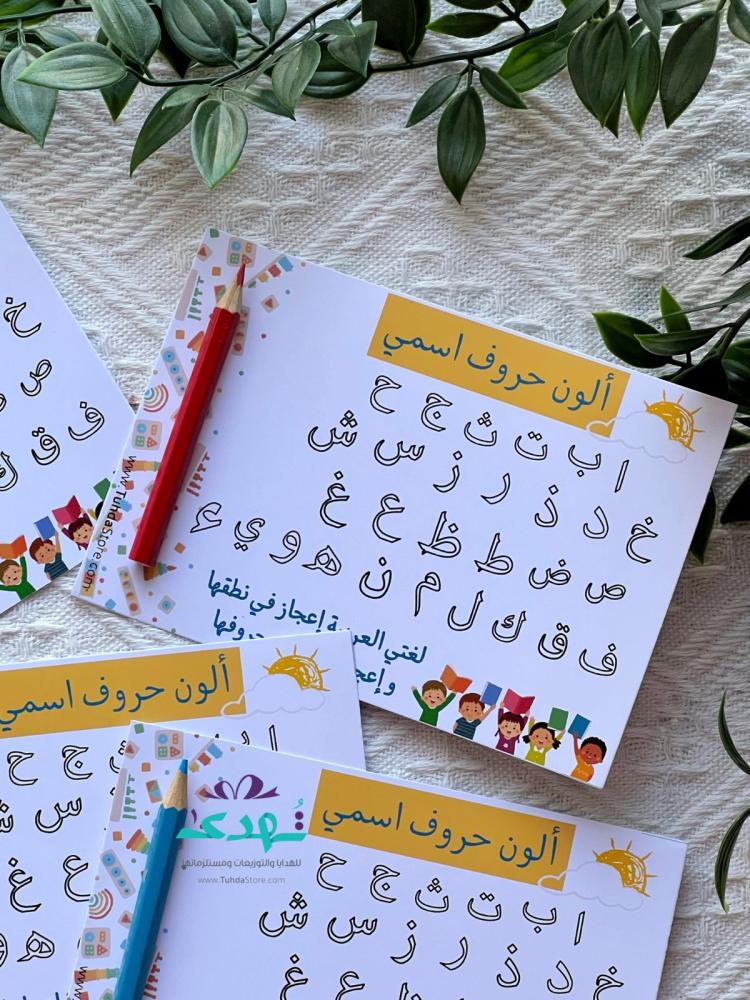 خ
ص
ف ق ك
ألون حروف اسمي
ا ب ت ث ج ح
خ د ذ ر ز س ش
ص ض ط ظ ع غ
ف ق ك ل م ن ه و ي ء
لغتي العربية إعجاز في نطقها
وإعجاز حروفها
www.TuhdaStore.com
ألون حروف اسمي
ا ج ح
س
ع غ
ه
ألون حروف اسمي
ا ب ت ث ج ح
خ د ذ ر ز س ش
ع غ
تُهدى
للهدايا والتوزيعات ومستلزماتها
www.TuhdaStore.com